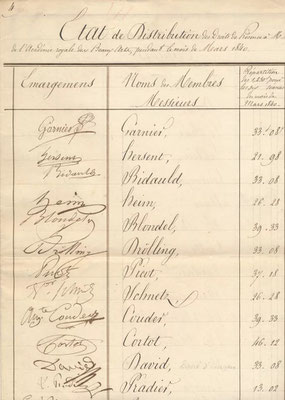 Etat de Distribution des Droits de Présence à M.
de l'Académie royale des Beaux Arts, pendant le mois de Mars 1840.
Emargemens Noms des Membres Répartition
Messieurs
Mars 1840.
Garnier Garnier, 33. 08
hersent Hersent, 21. 98
Bidauld Bidauld, 33. 08
heim Heim, 26. 28
Blondel Blondel, 39. 33
Drölling Drölling, 33. 08
Picot Picot, 37. 18
Schnetz Schnetz, 26. 28
Couder Couder, 39. 33
Cortot Cortot, 46. 12
David David, 33. 08
Pradier, 13. 02